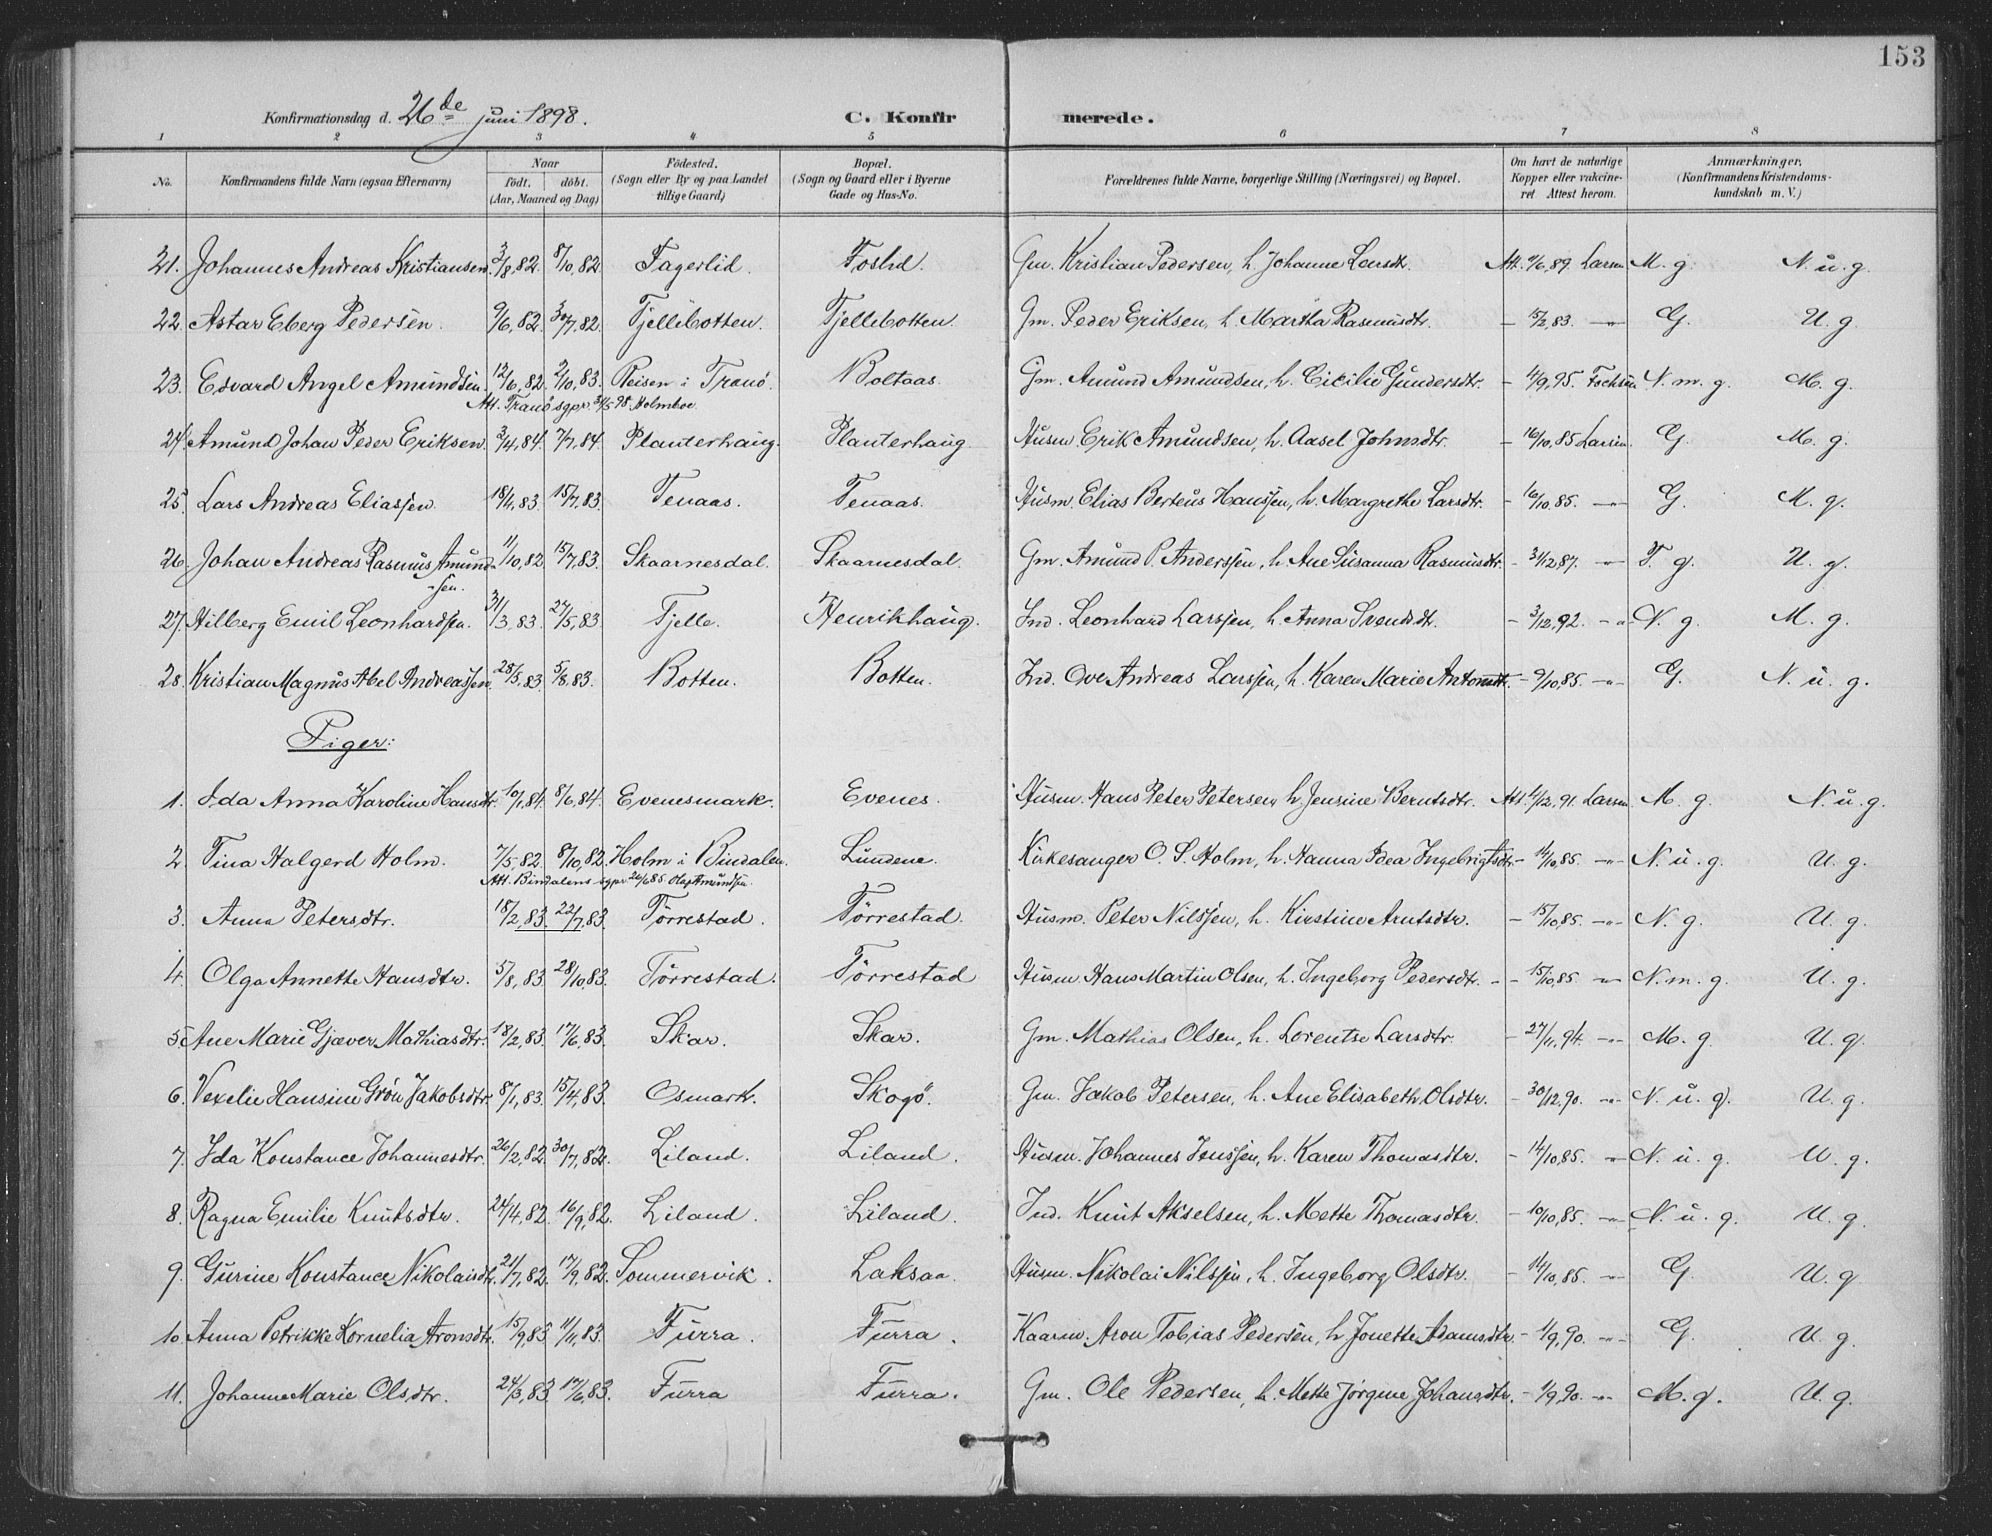 153
Konfirmationsdag d. 26de juni 1898. C. Konfirmerede.
1 2 3 4 5 6 7 8
No. Konfirmandens fulde Navn (ogsaa Efternavn) Naar födt. döbt. (Aar, Maaned og Dag) Födested. (Sogn eller By og paa Landet tillige Gaard) Bopæl. (Sogn og Gaard eller i Byerne Gade og Hus-No. Forældrenes fulde Navne, borgerlige Stilling (Næringsvei) og Bopæl. Om havt de naturlige Kopper eller vakcineret Attest herom. Anmærkninger. (Konfirmandens Kristendomskundskab m. V.)
21. Johannes Andreas Kristiansen. 3/8,82. 8/10,82. Fagerlid. Foslid. Gm. Kristian Pedersen, h. Johanne Larsdtr. Att. 11/6,89. Larsen M. g. N. u. g.
22. Astar Eberg Pedersen. 9/6,82. 30/7,82. Tjellebotten. Tjellebotten. Gm. Peder Eriksen, h. Martha Rasmusdtr. – 15/2,83. –"– G. U. g.
23. Edvard Angel Amundsen. 12/6,82. 2/10,83. Reisen i Tranö. Boltaas. Gm. Amund Amundsen, h. Cicilie Gundersdtr. – 11/9,95. N. m. g. M. g.
Att. Tranö sgpr. 31/5 98 Holmboe.
24. Amund Johan Peder Eriksen. 3/4,84. 7/7,84. Planterhaug. Planterhaug Husm Erik Amundsen, h. Aasel Johnsdtr. – 16/10,85 Larsen. G. M. g.
25. Lars Andreas Eliassen. 18/4,83. 15/7,83. Tenaas. Tenaas. Husm. Elias Berteus Hanssen, h. Margrethe Larsdtr. – 16/10.85. –"– G. M. g.
26. Johan Andreas Rasmus Amund- 11/10,82 15/7,83. Skaarnesdal. Skaarnesdal. Gm. Amund P. Anderssen, h. Ane Susanna Rasmusdtr. – 31/12,87. –"– T. g. U. g.
sen.
27. Hilberg Emil Leonhardsen. 31/3,83. 27/5,83 Tjelle. Henrikhaug. Ind. Leonhard Larssen, h. Anna Svendsdtr. – 3/12,92. –"– N. g. M. g.
28. Kristian Magnus Abel Andreassen. 28/5,83 5/8,83. Botten. Botten. Ind. Ove Andreas Larssen, h. Karen Marie Antonsdtr. – 9/10,85. –"– G. N. u. g.
Piger:
1. Ida Anna Karoline Hansdtr. 10/1,84. 8/6,84. Evenesmark. Evenes. Husm. Hans Peter Petersen, h. Jensine Berntsdtr. Att. 4/12,91. Larsen. M. g. N. u. g.
2. Tina Halgerd Holm. 7/5,82. 8/10,82. Holm i Bindalen. Lundene. Kirkesanger O. S. Holm, h. Hanna Idea Ingebrigtsdtr. – 14/10,85. –"– N. u. g. U. g.
Att. Bindalens sgpr. 26/6 85. Olaf Amundsen.
3. Anna Petersdtr. 18/2,83. 22/7,83. Tørrestad. Tørrestad. Husm. Peter Nilssen, h. Kirstine Arntsdtr. – 15/10,85. –"– N. g. U. g.
4. Olga Annette Hansdtr. 5/8,83. 28/10,83. Tørrestad. Tørrestad Husm. Hans Martin Olsen, h. Ingeborg Pedersdtr. – – 15/10,85. –"– N. m. g. U. g.
5. Ane Marie Gjæver Mathiasdtr. 18/2,83. 17/6,83. Skar. Skar. Gm. Mathias Olsen, h. Lorentse Larsdtr. – 27/11,94. –"– M. g. U. g.
6. Vexelie Hansine Grön Jakobsdtr. 8/1,83. 15/4,83. Osmark. Skogö. Gm. Jakob Petersen, h. Ane Elisabeth Olsdtr. – 30/12,90. –"– N. u. g. U. g.
7. Ida Konstance Johannesdtr. 26/2,82. 30/7,82. Liland. Liland. Husm. Johannes Jenssen, h. Karen Thomasdtr. – 14/10,85. –"– N. u. g. U. g.
8. Ragna Emilie Knutsdtr. 24/4,82. 16/9,82. Liland. Liland. Ind. Knut Akselsen, h. Mette Thomasdtr. – 10/10,85. –"– N. u. g. U. g.
9. Gurine Konstance Nikolaisdtr. 21/7,82. 17/9,82. Sommervik. Laksaa. Husm. Nikolai Nilssen, h. Ingeborg Olsdtr. – 14/10,85. –"– G. U. g
10. Anna Petrikke Kornelia Aronsdtr. 15/9,83 11/11,83. Furra. Furra. Kaarm. Aron Tobias Pedersen, h Jonette Adamsdtr. – 1/9,90. –"– G. U. g.
11. Johanne Marie Olsdtr. 24/3,83. 17/6,83. Furra Furra. Gm. Ole Pedersen, h. Mette Jørgine Johansdtr. – 1/9,90. –"– M. g. U. g.